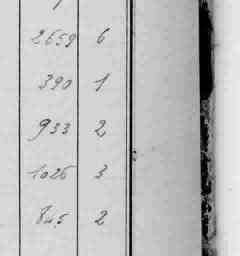 2659 6
390 1
933 2
1026 3
845 2